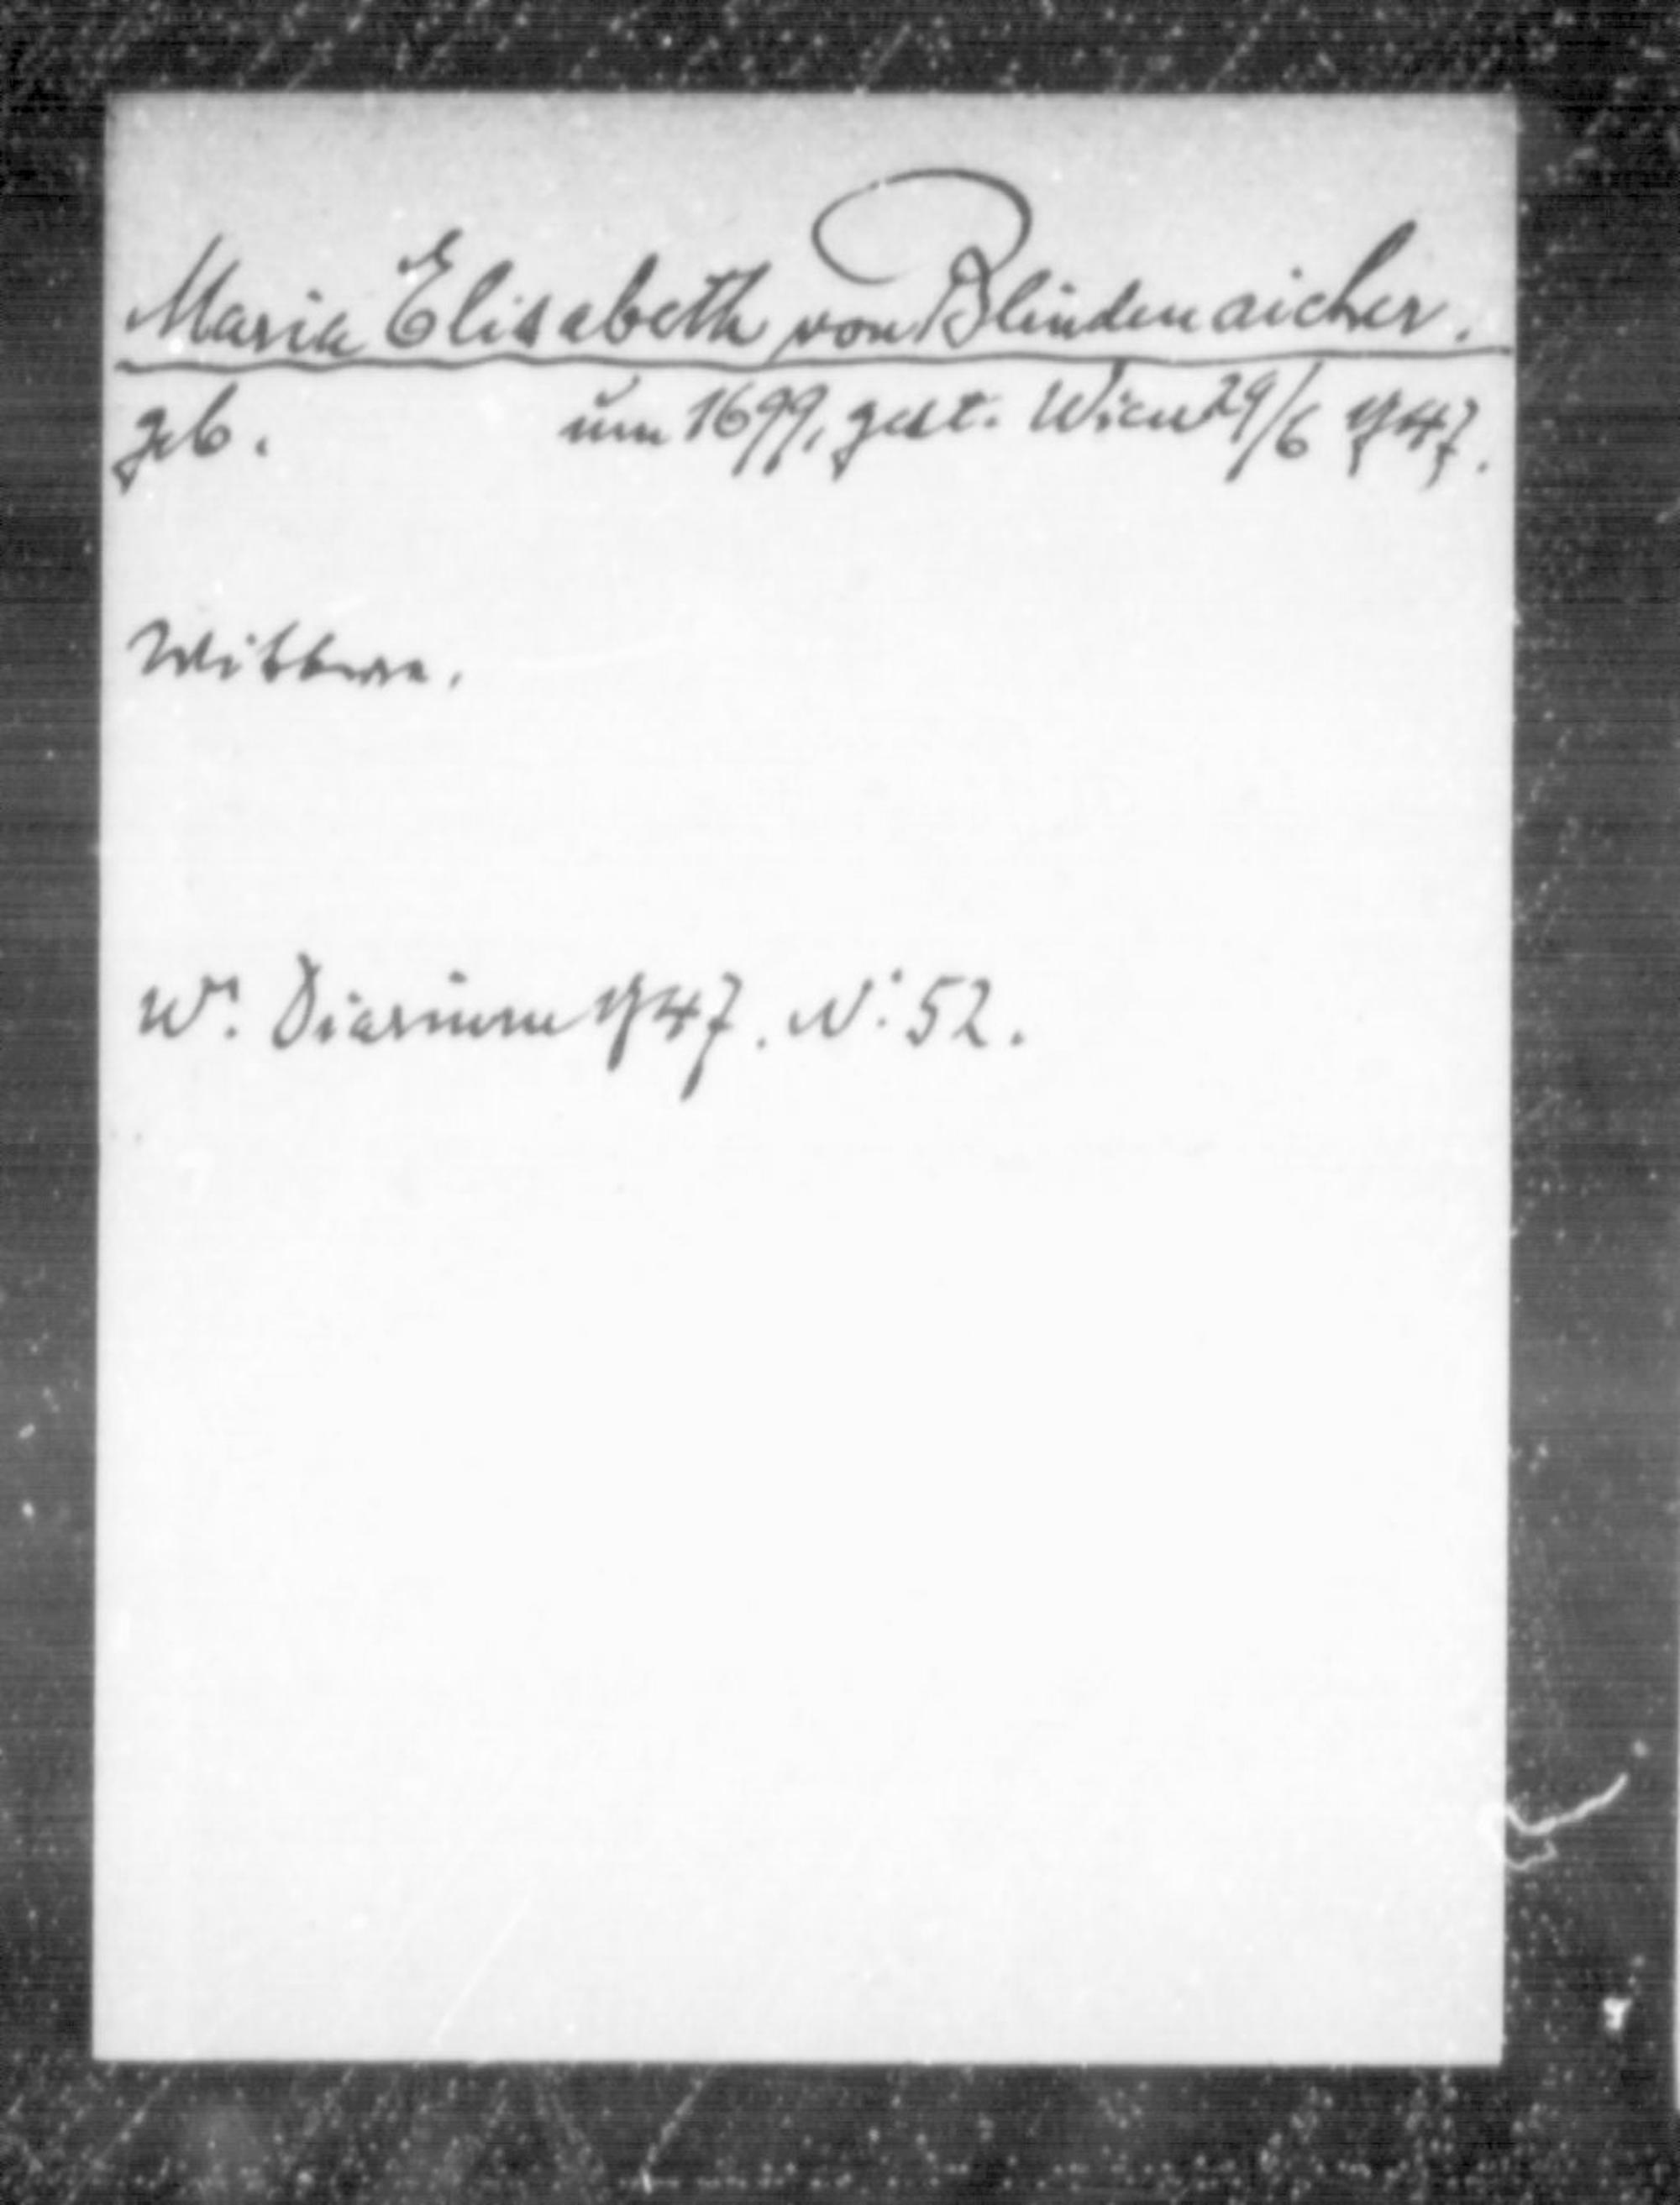 Maria Elisabeth von Blindenaicher.
geb. um 1699, gest. Wien 29/6 1747.
Wittwe.
Wr. Diarium 1747. N: 52.